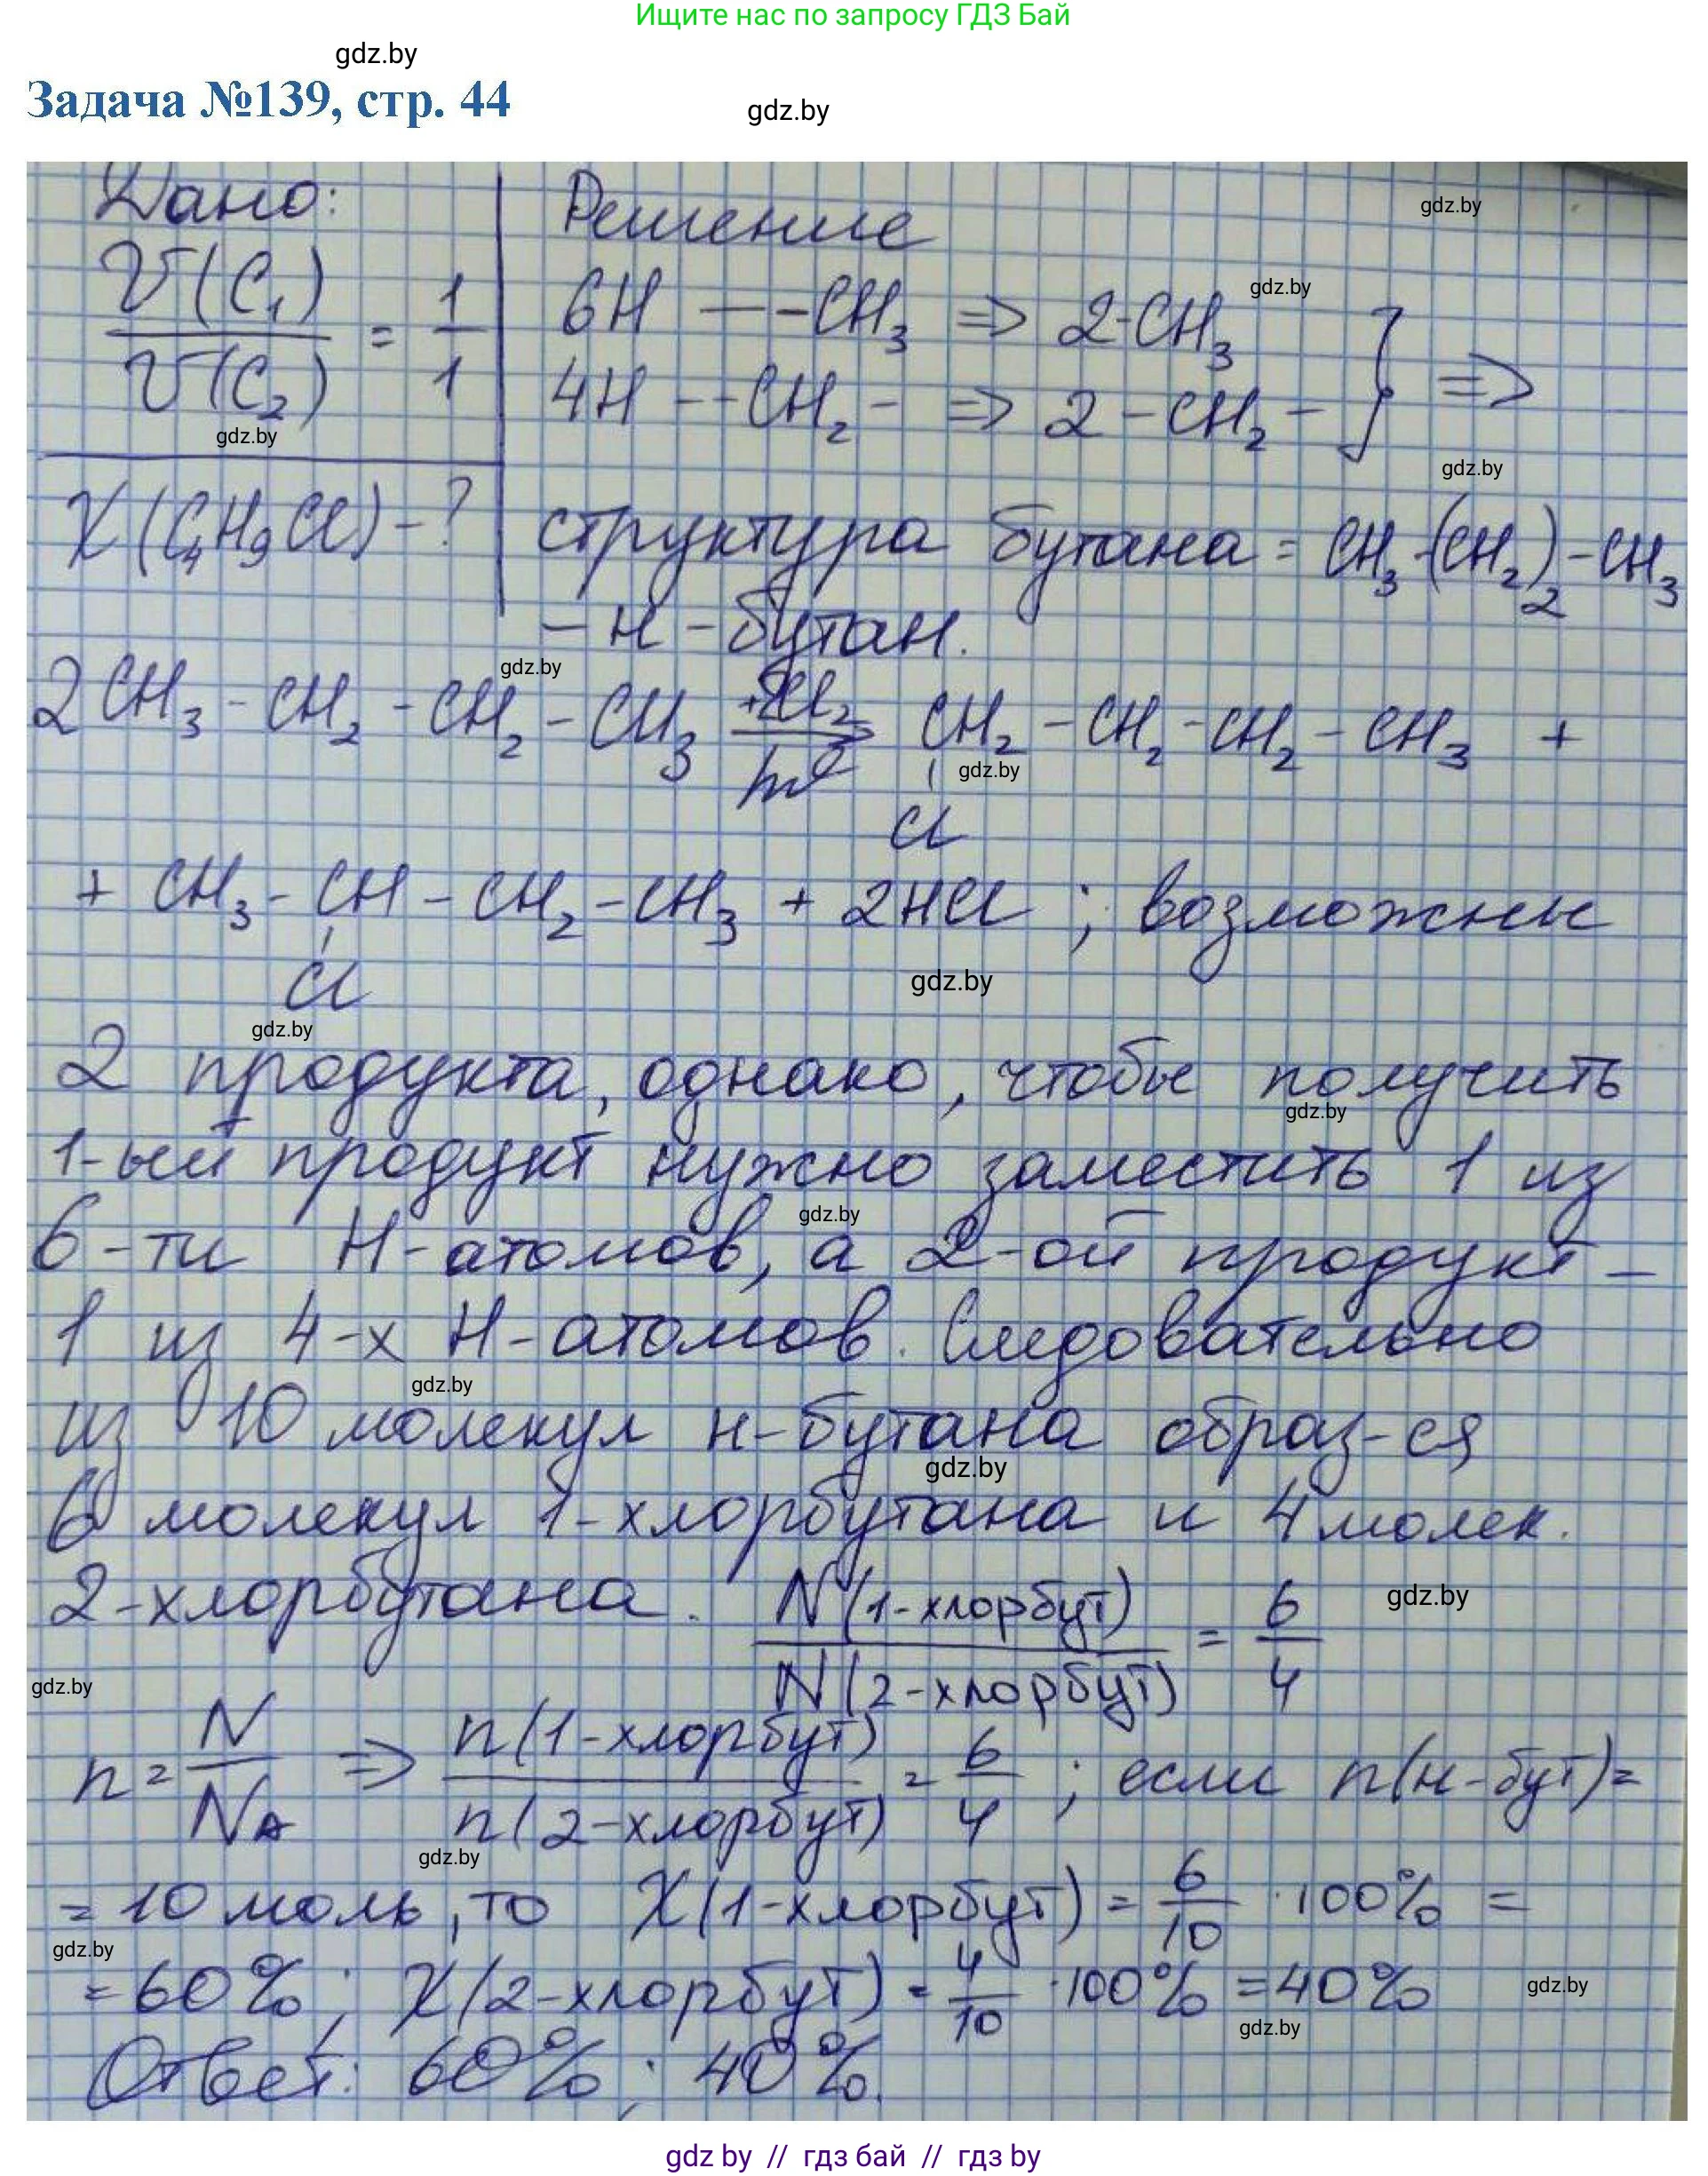 Ищите нас по запросу ГДЗ Бай
gdz.by
Задача №139, стр. 44
gdz.by
Дано:
Решение
gdz.by
V(C₁)/V(C₂) = 1/1
6H — –CH₃ ⇒ 2-CH₃
gdz.by
4H – –CH₂– ⇒ 2 –CH₂– } ⇒
gdz.by
gdz.by
X(C₄H₉Cl) – ?
структура бутана = CH₃-(CH₂)₂-CH₃
– н – бутан.
gdz.by
2CH₃ – CH₂ – CH₂ – CH₃ +2Cl₂/hν → CH₂ – CH₂ – CH₂ – CH₃ +
gdz.by
Cl
+ CH₃ – CH – CH₂ – CH₃ + 2HCl ; возможны
Cl
gdz.by
gdz.by
2 продукта, однако, чтобы получить
gdz.by
1-ый продукт нужно заместить 1 из
gdz.by
6-ти H-атомов, а 2-ой продукт –
1 из 4-х H-атомов. Следовательно
gdz.by
из 10 молекул н-бутана образ-ся
gdz.by
6 молекул 1-хлорбутана и 4 молек.
2-хлорбутана. N(1-хлорбут)/N(2-хлорбут) = 6/4
gdz.by
gdz.by
n = N/Nᴀ ⇒ n(1-хлорбут)/n(2-хлорбут) = 6/4 ; если n(н-бут)=
gdz.by
= 10 моль, то X(1-хлорбут) = 6/10 · 100% =
gdz.by
= 60% ; X(2-хлорбут) = 4/10 · 100% = 40%
gdz.by
gdz.by
Ответ: 60% ; 40%.
gdz by // гдз бай // гдз by